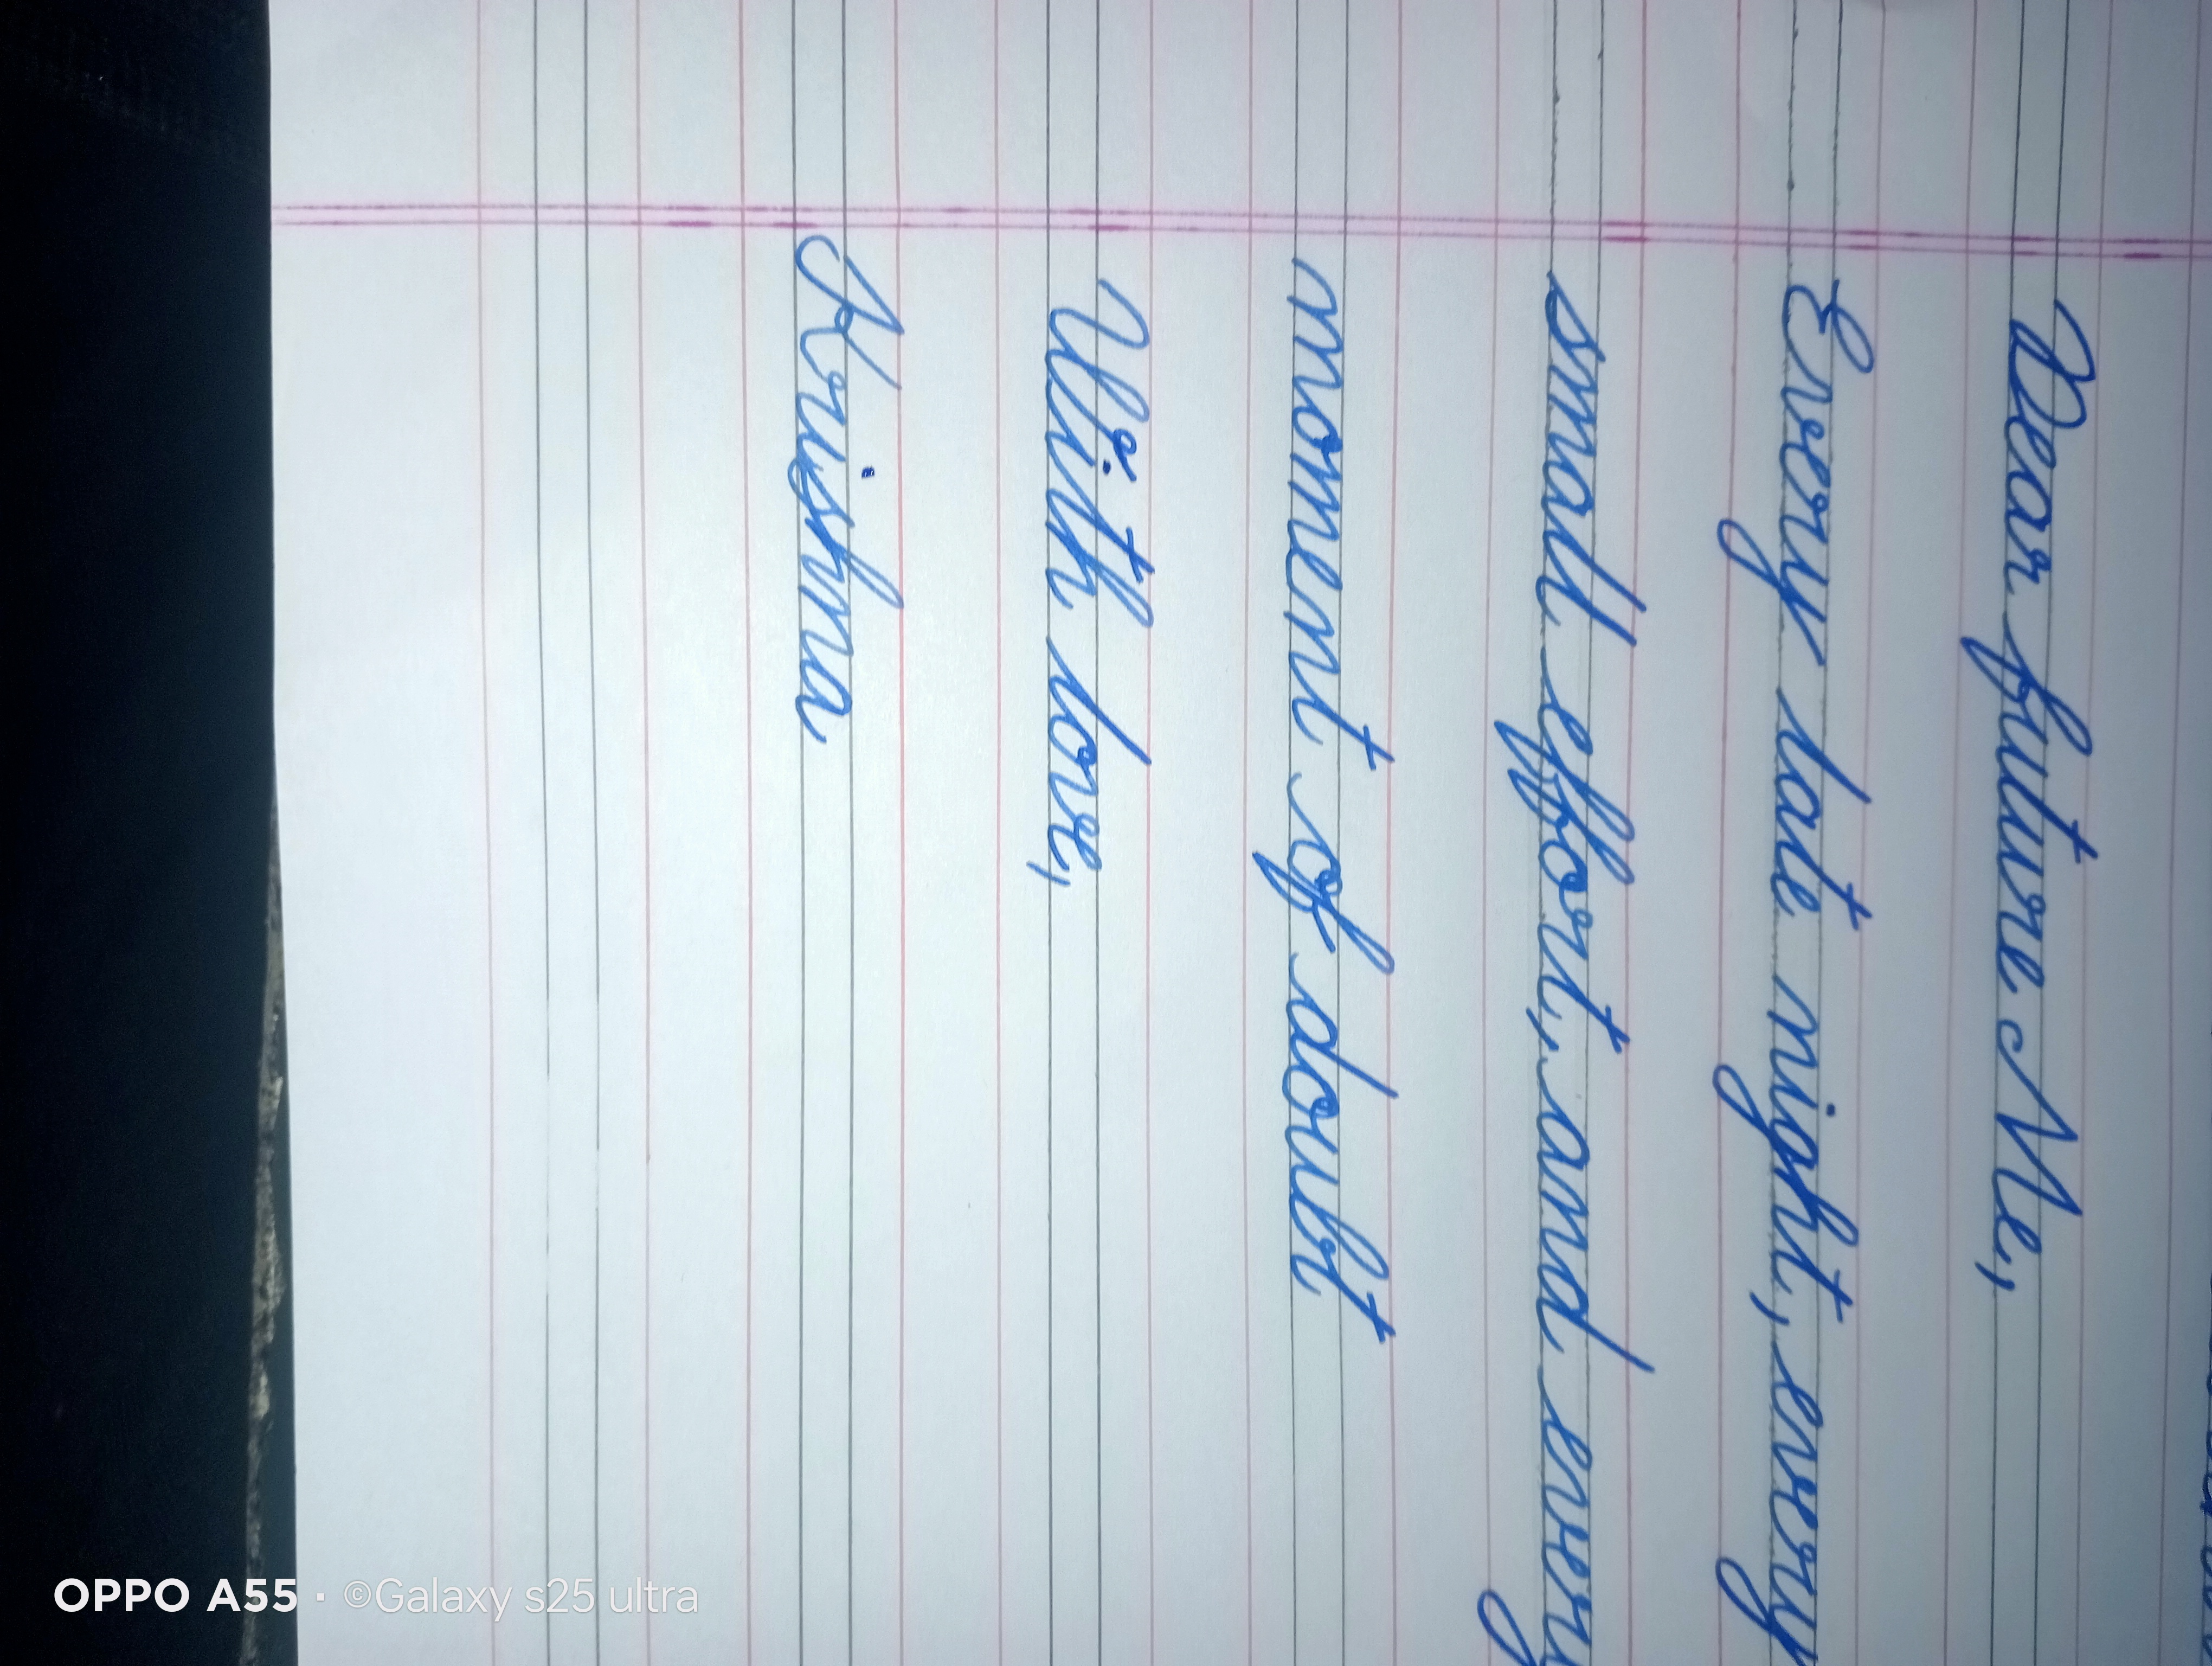 Dear future Me,
Every late night, every
small effort, and every
moment of doubt
With love,
Krishma
OPPO A55 · ©Galaxy s25 ultra